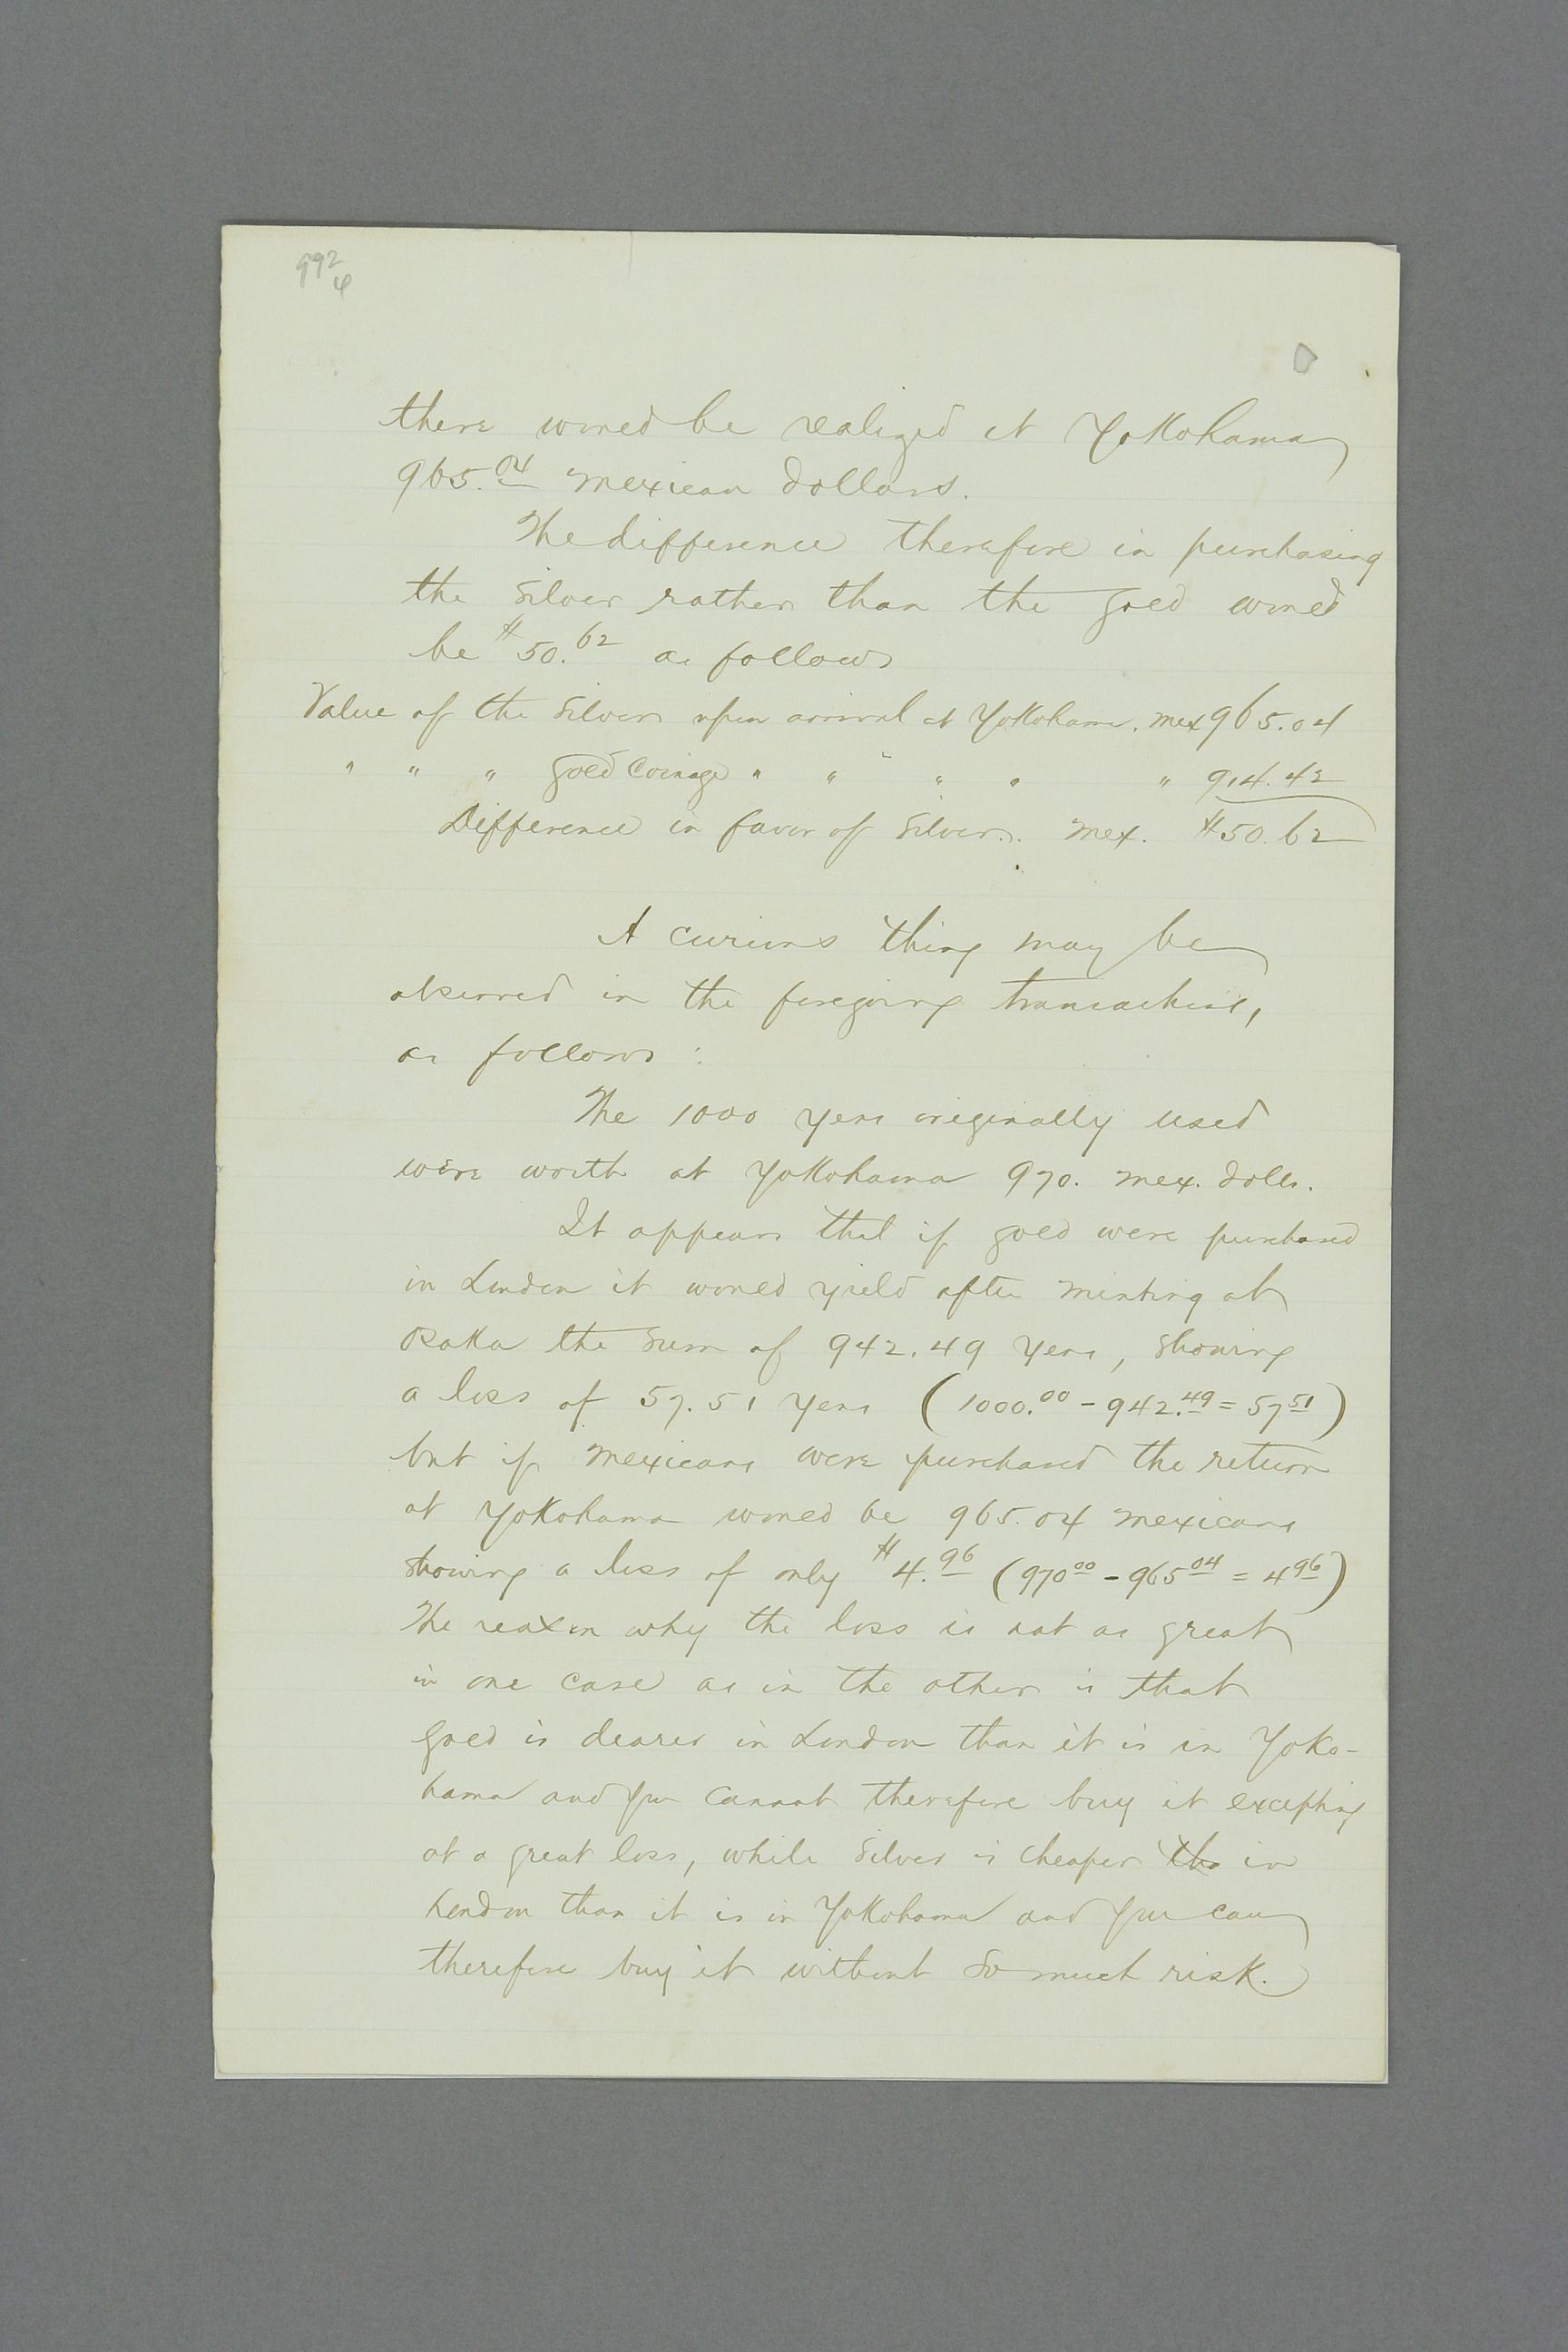 992
4
there would be realized at Yokohama
965.04 Mexican Dollars.
The difference therefore in purchasing
the Silver rather than the gold would
be $50.62 as follows
Value of the Silver upon arrival at Yokohama. Mex 965.04
" " " Gold Coinage " " " " " " 914.42
Difference in favor of Silver. Mex. $50.62
A curious thing may be
observed in the foregoing transactions,
as follows:
The 1000 yens originally used
were worth at Yokohama 970. Mex. Dolls.
It appears that if gold were purchased
in London it would yield after minting at
Osaka the Sum of 942.49 Yens, Showing
a loss of 57.51 Yens (1000.00 - 942.49 = 57 51)
but if Mexicans were purchased the return
at Yokohama would be 965.04 Mexicans
showing a loss of only $4.96 (970 00 - 965 04 = 4 96)
The reason why the loss is not as great
in one case as in the other is that
gold is dearer in London than it is in Yoko-
hama and you cannot therefore buy it excepting
at a great loss, while Silver is cheaper tha in
London than it is in Yokohama and you can
therefore buy it without so much risk.